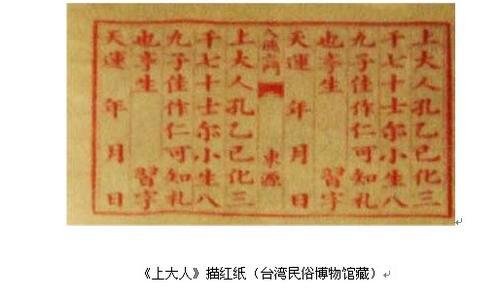 上大人孔乙己化三
千七十士尔小生八
九子佳作仁可知礼
也 生 習字
天運 年 月 日
東源
上大人孔乙己化三
千七十士尔小生八
九子佳作仁可知礼
也 生 習字
天運 年 月 日
《上大人》描红纸（台湾民俗博物馆藏）